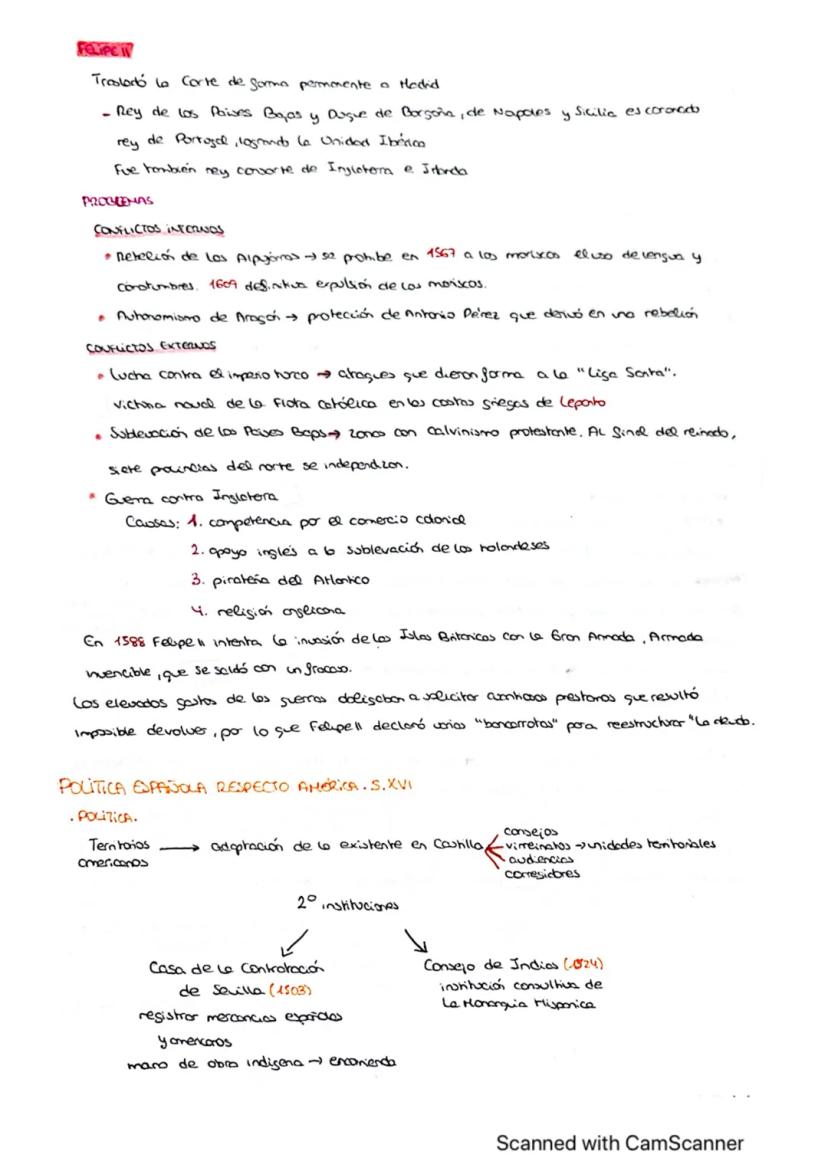 FELIPE II
Trasladó la Corte de forma permanente a Madrid
- Rey de los Paises Bajos y Duque de Borgoña, de Napoles y Sicilia es coronado
rey de Portugal, logrando la Unidad Ibérica
Fue también rey consorte de Inglaterra e Irlanda
PROBLEMAS
CONFLICTOS INTERNOS
• Rebelión de las Alpujarras → se prohibe en 1567 a los moriscos el uso de lengua y
costumbres. 1609 definitiva expulsión de los moriscos.
• Autonomismo de Aragón → protección de Antonio Pérez que derivó en una rebelión
CONFLICTOS EXTERNOS
• Lucha contra el imperio turco → ataques que dieron forma a la "Liga Santa".
Victoria naval de la Flota Católica en las costas griegas de Lepanto
• Sublevación de los Países Bajos → zonas con calvinismo protestante. Al final del reinado,
siete provincias del norte se independizan.
• Guerra contra Inglaterra
Causas: 1. competencia por el comercio colonial
2. apoyo inglés a la sublevación de los holandeses
3. piratería del Atlantico
4. religión anglicana
En 1588 Felipe II intenta la invasión de las Islas Britanicas con la Gran Armada, Armada
invencible, que se saldó con un fracaso.
Los elevados gastos de las guerras obligaban a solicitar continuos prestamos que resultó
imposible devolver, por lo que Felipe II declaró varias "bancarrotas" para reestructurar "la deuda.
POLÍTICA ESPAÑOLA RESPECTO AMÉRICA. S.XVI
. POLÍTICA.
Territorios americanos → adaptación de lo existente en Castilla
consejos
virreinatos → unidades territoriales
audiencias
corregidores
2º instituciones
Casa de la Contratación
de Sevilla (1503)
registrar mercancías españolas
y americanos
mano de obra indígena → encomienda
Consejo de Indias (1524)
institución consultiva de
La Monarquía Hispanica
Scanned with CamScanner